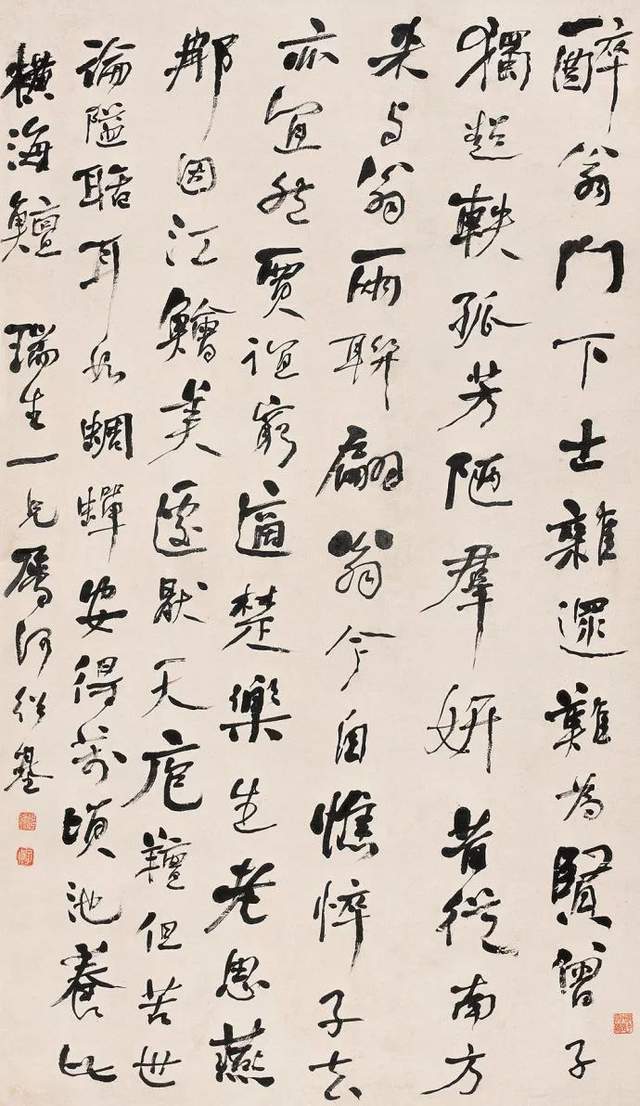 醉翁門下士雜遝難為賢曾子
獨超軼孤芳陋羣妍昔從南方
来与翁兩聯翩翁今自憔悴子去
亦宜然賈誼窮適楚樂生老思燕
那因江鱠美遽猒天庖羶但苦世
論隘聒耳如蜩蟬安得萬頃池養此
橫海鱣 瑞生一兄屬何紹基